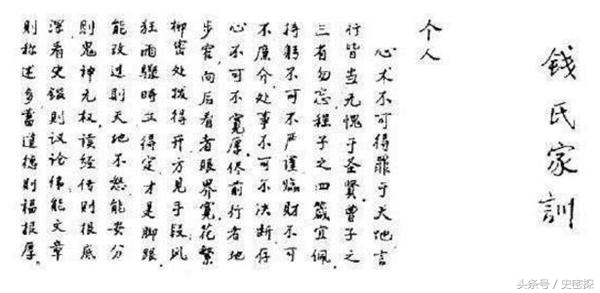 錢氏家訓
个人
心术不可得罪于天地言
行皆当无愧于圣贤曾子之
三省勿忘程子之四箴宜佩
持躬不可不严谨临财不可
不廉介处事不可不决断存
心不可不宽厚 前行者地
步窄向后看者眼界宽花繁
柳密处拨得开方见手段风
狂雨骤时立得定才是脚跟
能改过则天地不怒能安分
则鬼神无权读经传则根底
深看史鉴则议论伟能文章
则称述多蓄道德则福报厚
头条号 / 史密探